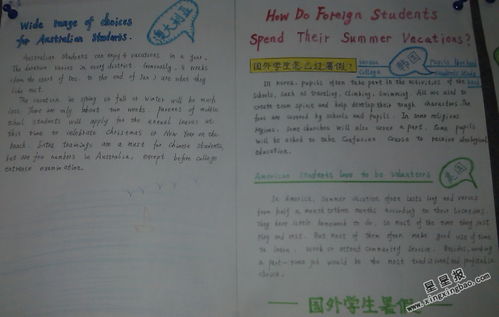 Wide Image of choices
for Australian Students.
澳大利亚
Australian students can enjoy 4 vacations in a year.
The duration varies in every district. Generally, 6 weeks
from the start of Dec. to the end of Jan) are what they
like most.
The vacation in spring or fall or winter will be much
less. There are only about two weeks. Parents of middle
school students will apply for the annual leave at
this time to celebrate Christmas or New Year on the
beach. Extra trainings are a must for Chinese students,
but are few numbers in Australia, except before college
entrance examination.
How Do Foreign Students
Spend Their Summer Vacations?
国外学生怎么过暑假?
college
韩国
In Korea, pupils often take part in the activities of the
schools, such as Traveling, Climbing, Swimming. All are used to
create team spirit and help develop their tough characters. The
fees are covered by schools and pupils. In some religious
regions, some churches will also cover a part. Some pupils
will be asked to take Confucian Course to receive ideological
education.
American Students love to be volunteers
美国
In America, summer vacation often lasts long and varies
from half a month to three months according to their locations.
They have little homework to do, so most of the time they just
play and rest. But most of them often make good use of time
to learn, work or attend community service. Besides, working
a part-time job would be the most traditional and profitable
choice.
国外学生暑假
星星报
www.xingxingbao.com